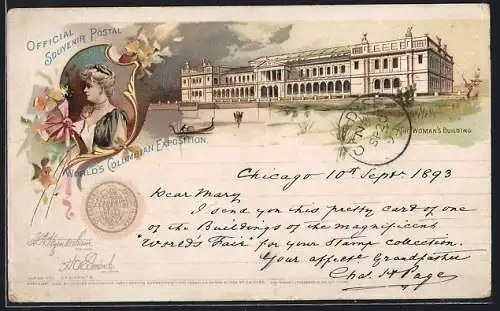 OFFICIAL
SOUVENIR POSTAL
WORLD'S COLUMBIAN EXPOSITION.
THE WOMAN'S BUILDING
Chicago 10th Sept. 1893
Dear Mary
I send you this pretty card of one
of the Buildings of the magnificent
"World's Fair" for your Stamp collection.
Your affecte Grandfather
Chas. H Page